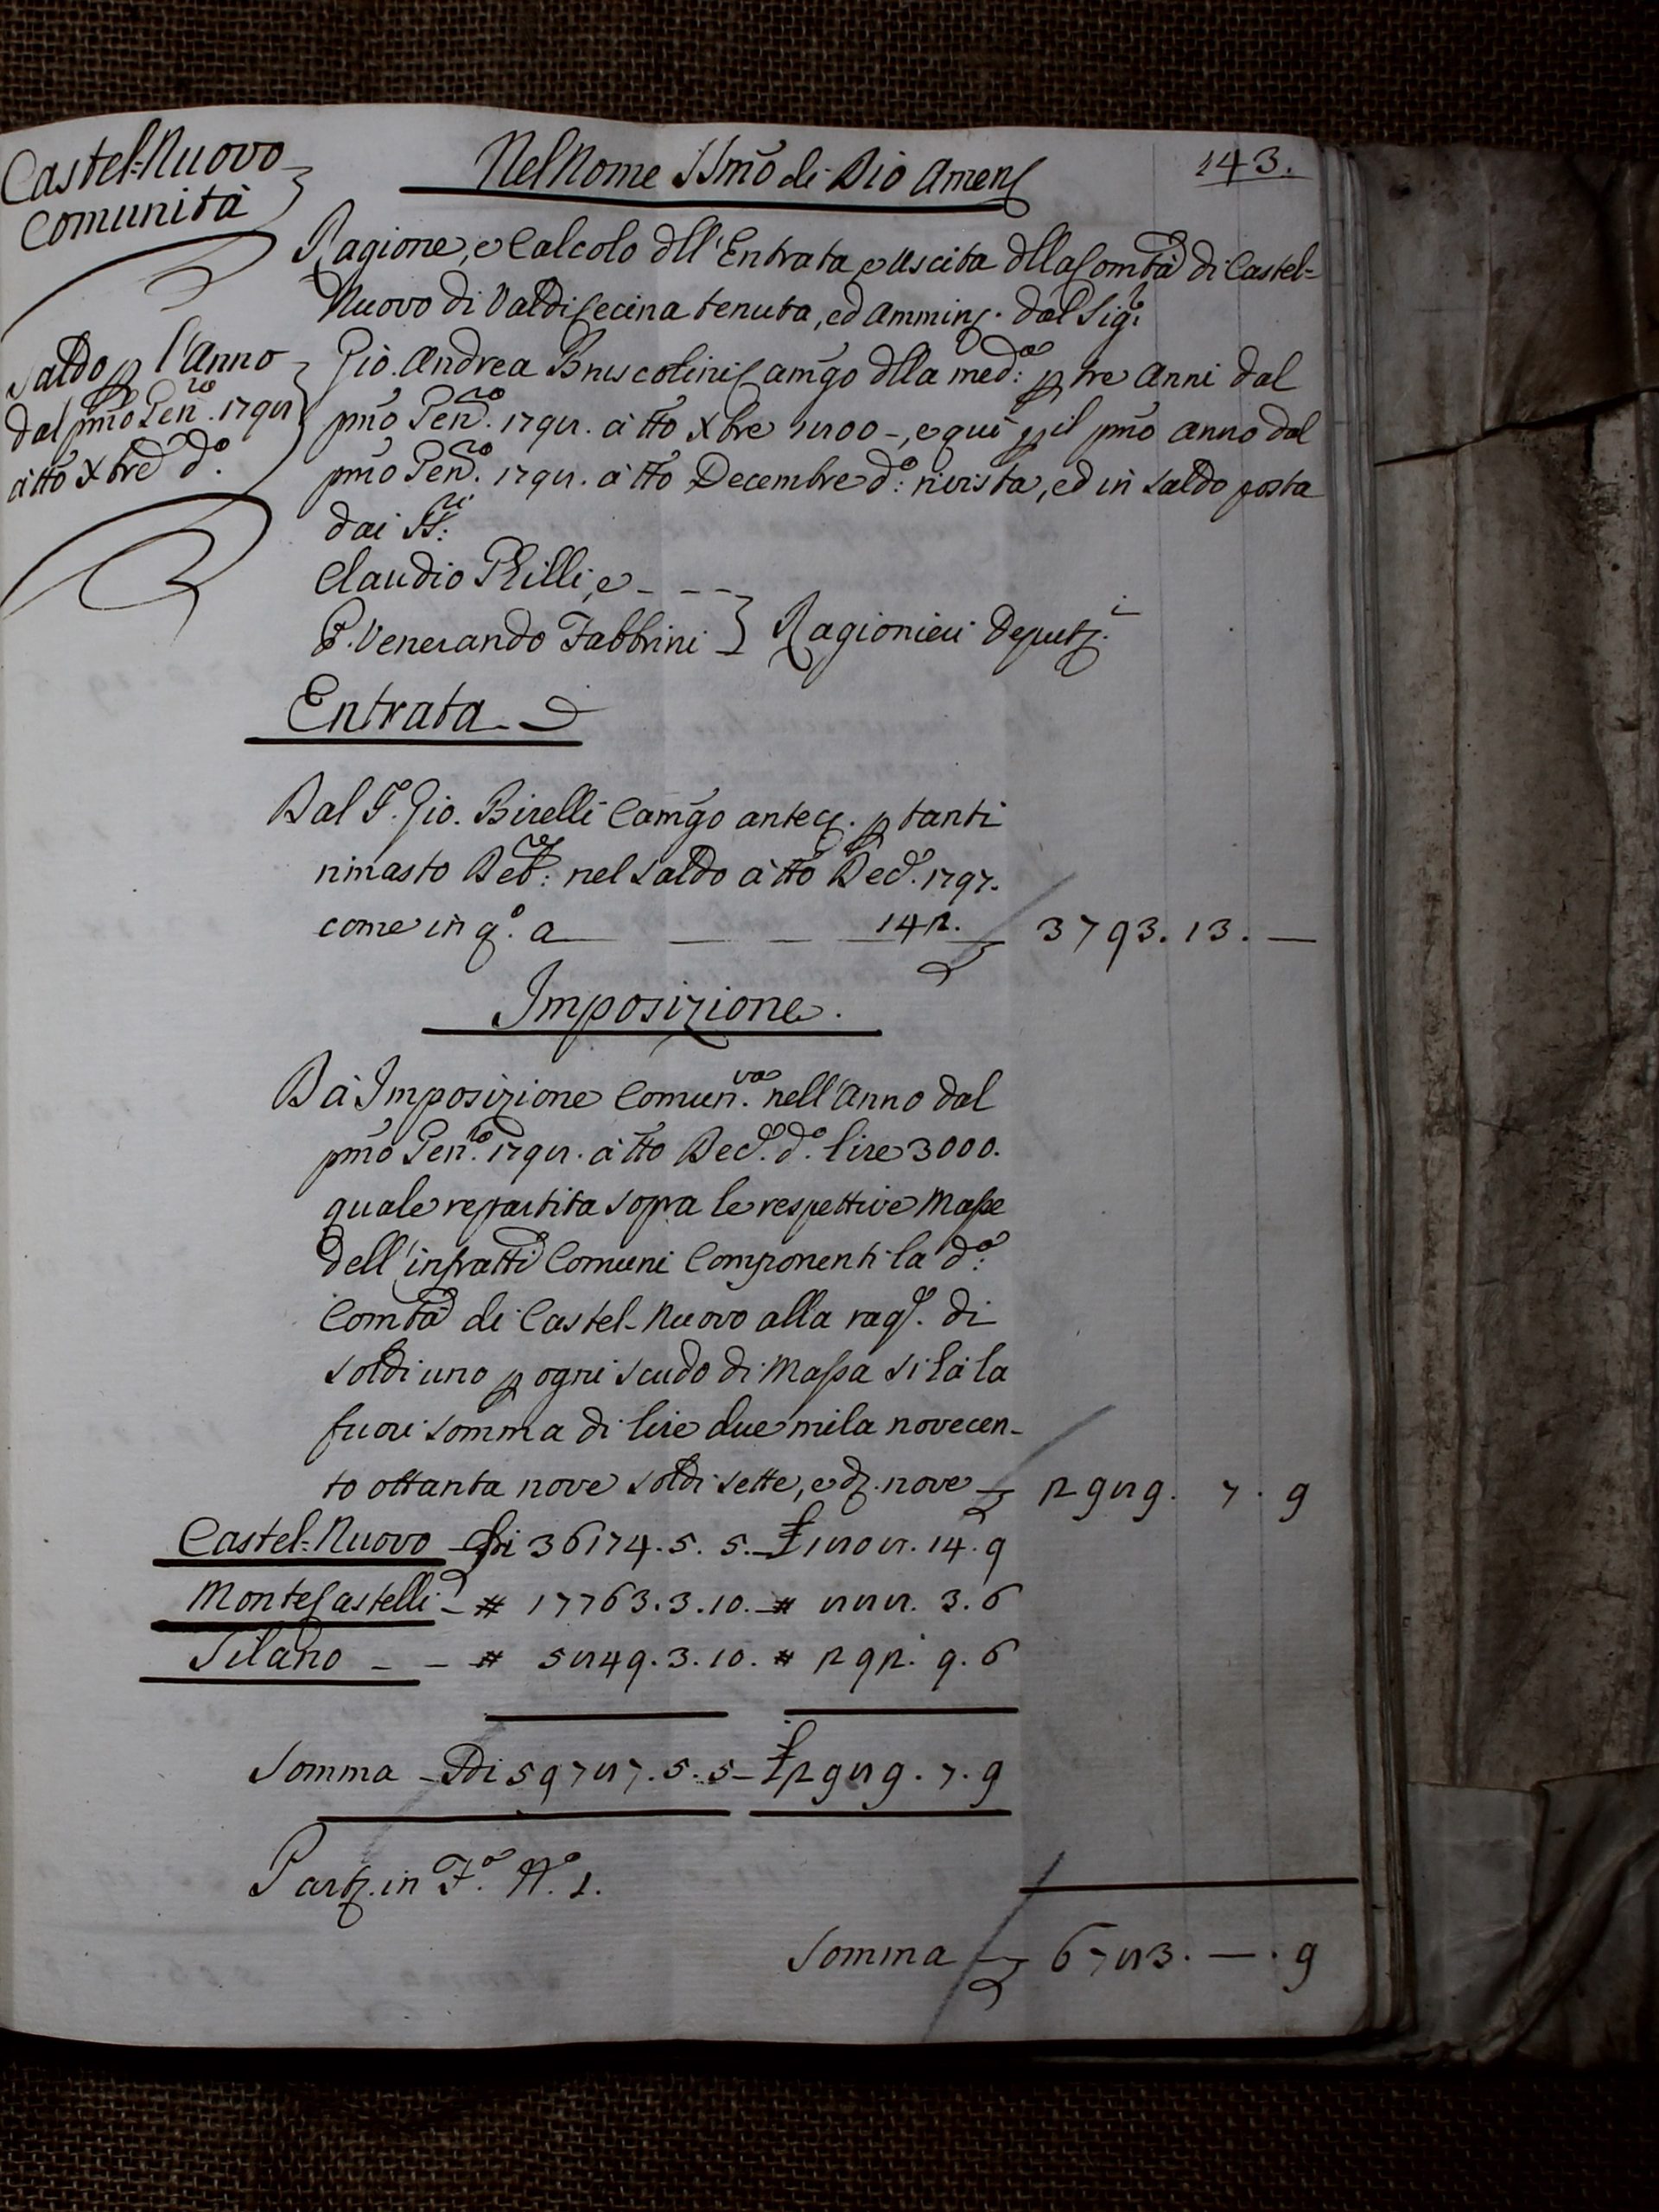 143.
Castel=Nuovo
Comunità
Saldo p l'Anno
dal pmo Genro. 1798
à tto Xbre do.
Nel Nome SSmo di Dio Amen
Ragione, e Calcolo dll'Entrata, e Uscita dlla Comtà di Castel=
Nuovo di Val di Cecina tenuta, ed Ammin. dal Sigr
Gio. Andrea Bruscolini Camgo dlla meda: p tre Anni dal
pmo Genro. 1798. à tto Xbre 1800-, e qui p il pmo anno dal
pmo Genro. 1798. à tto Decembre do: rivista, ed in saldo posta
dai SSri:
Claudio Rilli, e - - -
P. Venerando Fabbrini } Ragionieri Deputi.
Entrata
Dal S. Gio. Birelli Camgo antec. p tanti
rimasto Debre: nel saldo à tto Dece. 1797.
come in qo. a 142. 3793. 13. —
Imposizione.
Dà Imposizione Comunva. nell'Anno dal
pmo Genro. 1798. à tto Dece. do. lire 3000.
quale repartita sopra le respettive Masse
dell'infratti Comuni Componenti la da:
Comtà di Castel-Nuovo alla rage. di
soldi uno p ogni scudo di Massa si là la
fuori somma di lire due mila novecen-
to ottanta nove soldi sette, e d. nove 2989. 7. 9
Castel=Nuovo - Di 36174. 5. 5. - £ 1808. 14. 9
Monte Castelli - # 17763. 3. 10. - # 888. 3. 6
Silano - - # 5849. 3. 10. # 292. 9. 6
Somma - Di 59787. 5. 5 - £ 2989. 7. 9
Part. in Fa. No. 1.
Somma 6783. — . 9